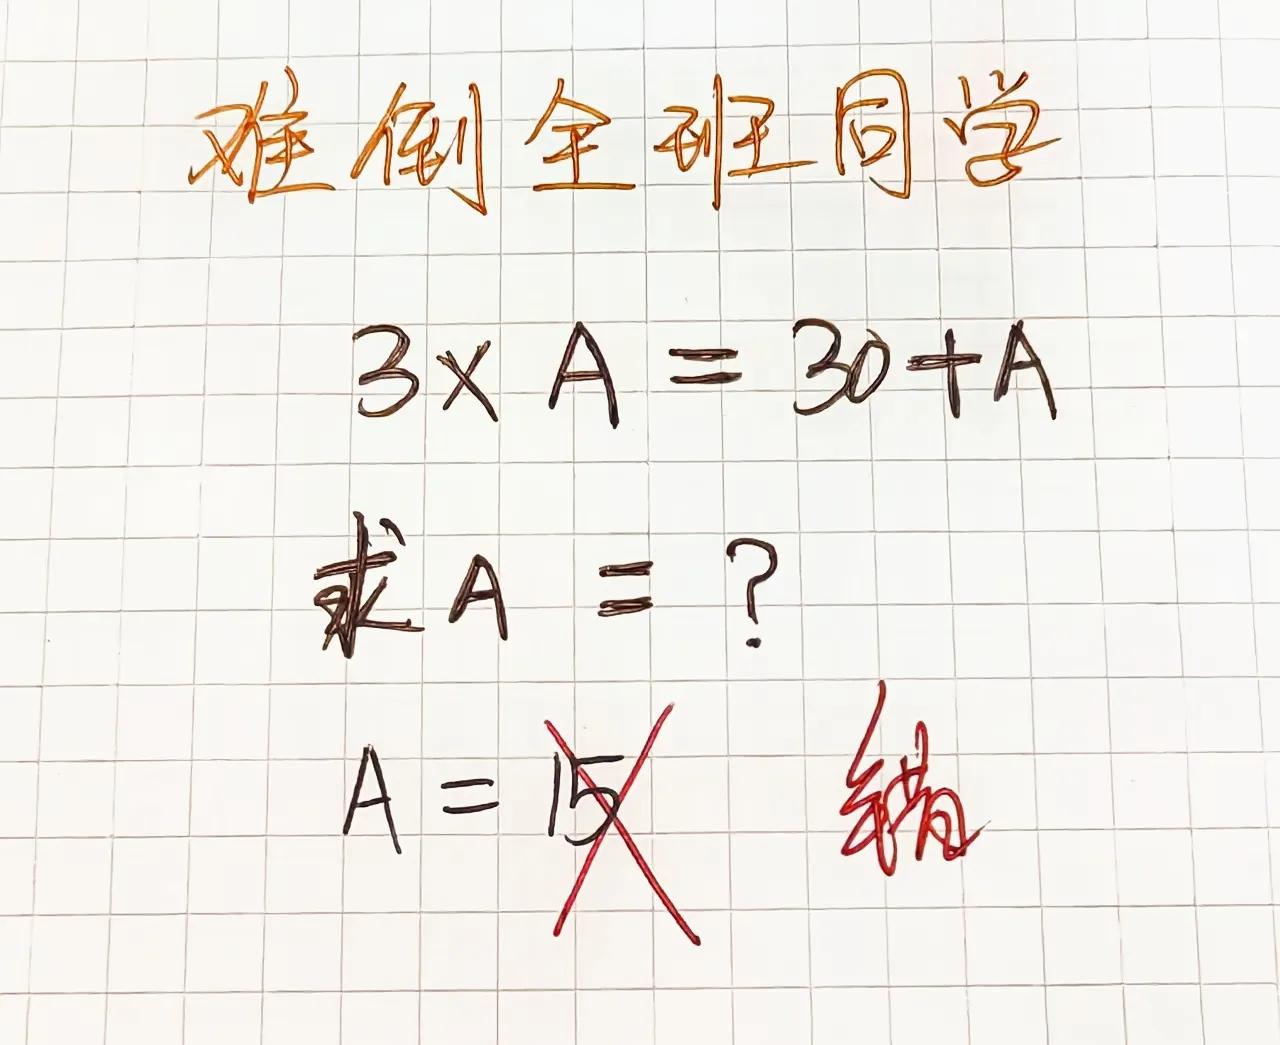 难倒全班同学
3×A=30+A
求A=?
A=15 错